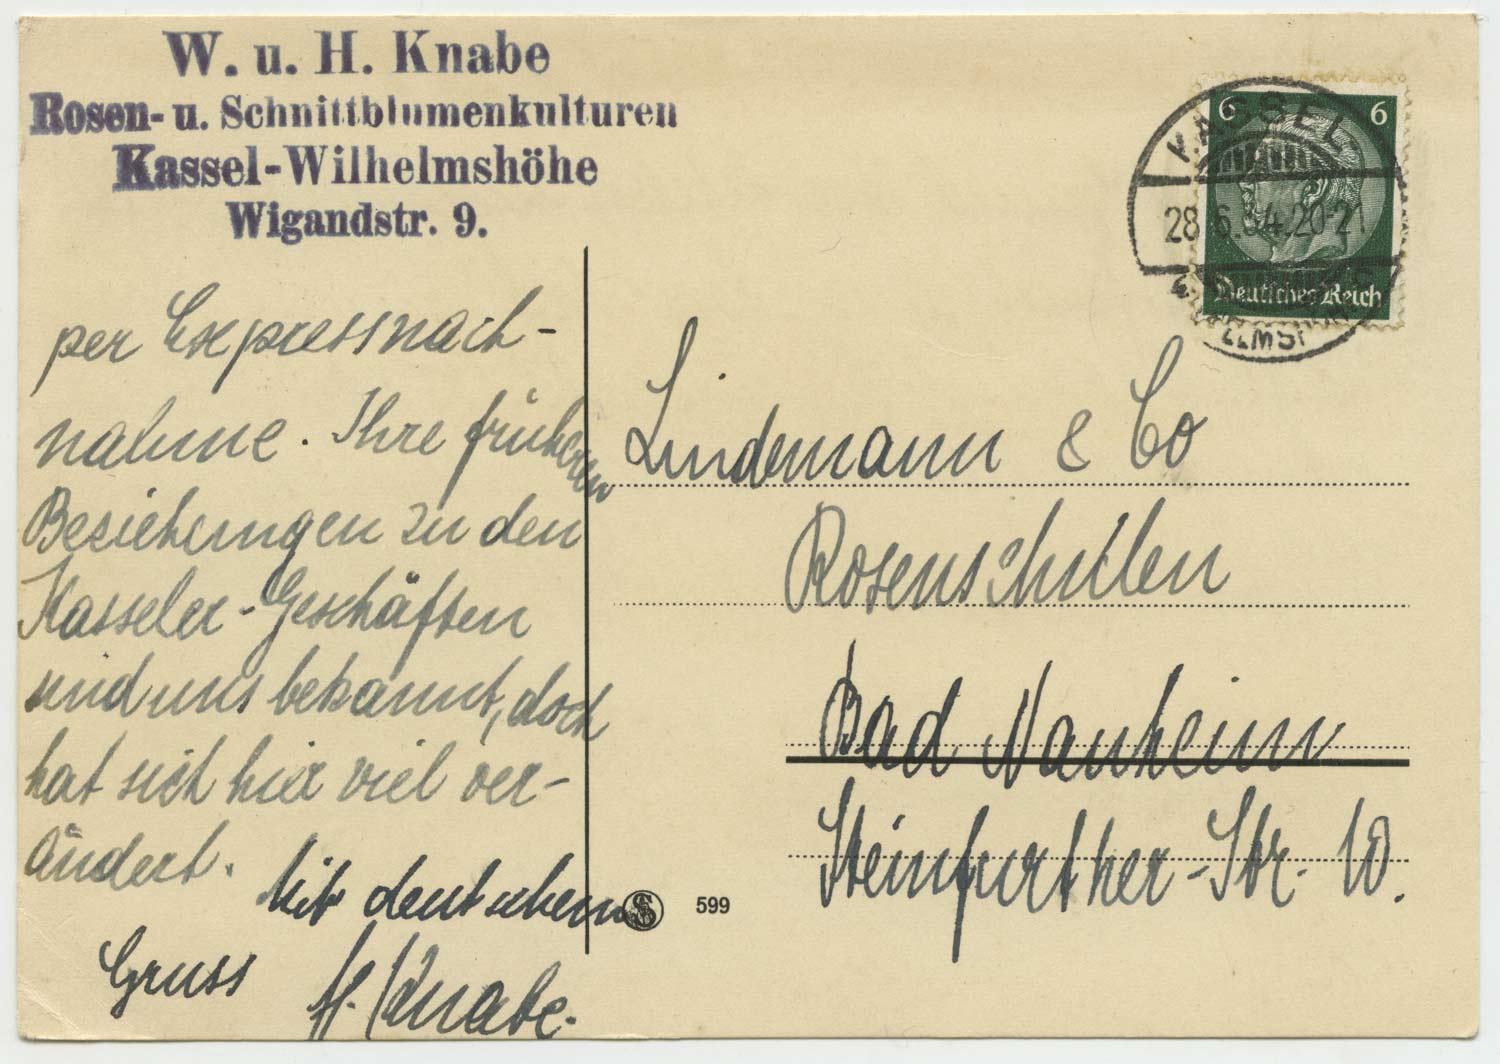 W. u. H. Knabe
Rosen- u. Schnittblumenkulturen
Kassel-Wilhelmshöhe
Wigandstr. 9.
6 6
Deutsches Reich
KASSEL
28.6.34.20-21
per Expressnach-
nahme. Ihre früheren
Beziehungen zu den
Kasseler-Geschäften
sind uns bekannt, doch
hat sich hier viel ver-
ändert.
Mit deutschem
Gruss H. Knabe.
Lindemann & Co
Rosenschulen
Bad Nauheim
Steinfurther-Str. 10.
599